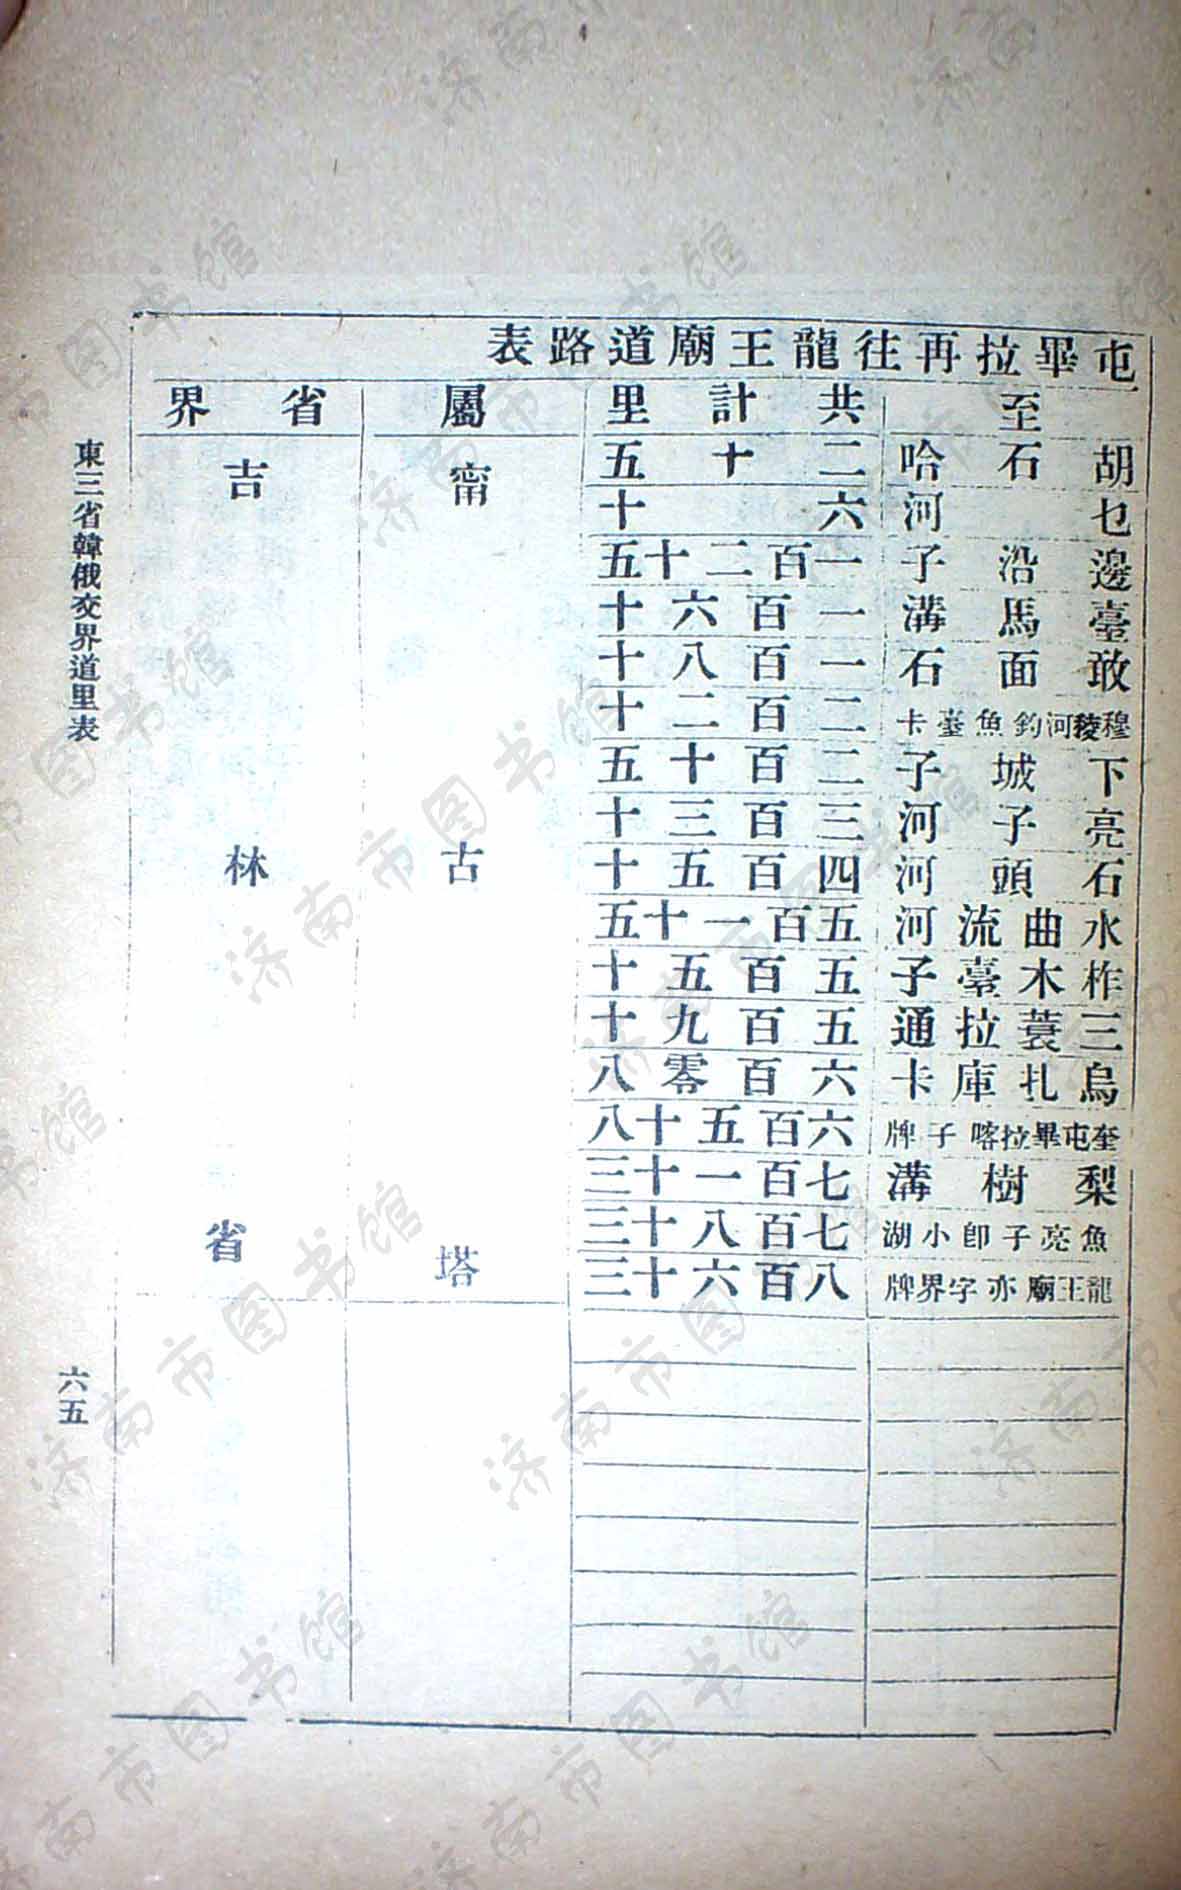 屯畢拉再往龍王廟道路表
至 共計里 屬 省界
胡石哈 二十五
乜河 六十
邊沿子 一百二十五
臺馬溝 一百六十
敢面石 一百八十
穆稜河釣魚臺卡 二百二十
下城子 二百十五
亮子河 三百三十
石頭河 四百五十
水曲流河 五百一十五
柞木臺子 五百五十
三蓑拉通 五百九十
烏扎庫卡 六百零八
奎屯畢拉喀子牌 六百五十八
梨樹溝 七百一十三
魚亮子卽小湖 七百八十三
龍王廟亦字界牌 八百六十三
甯古塔
吉林省
東三省韓俄交界道里表
六五
济南市图书馆